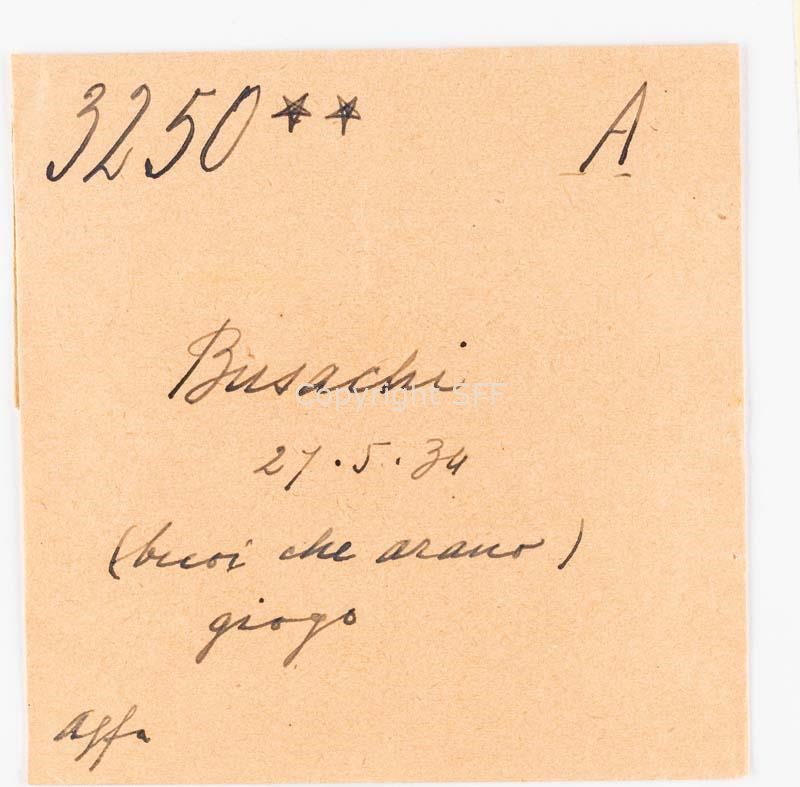 3250 ** A
Busachi
copyright SFF
27.5.34
(buoi che arano)
giogo
Agfa